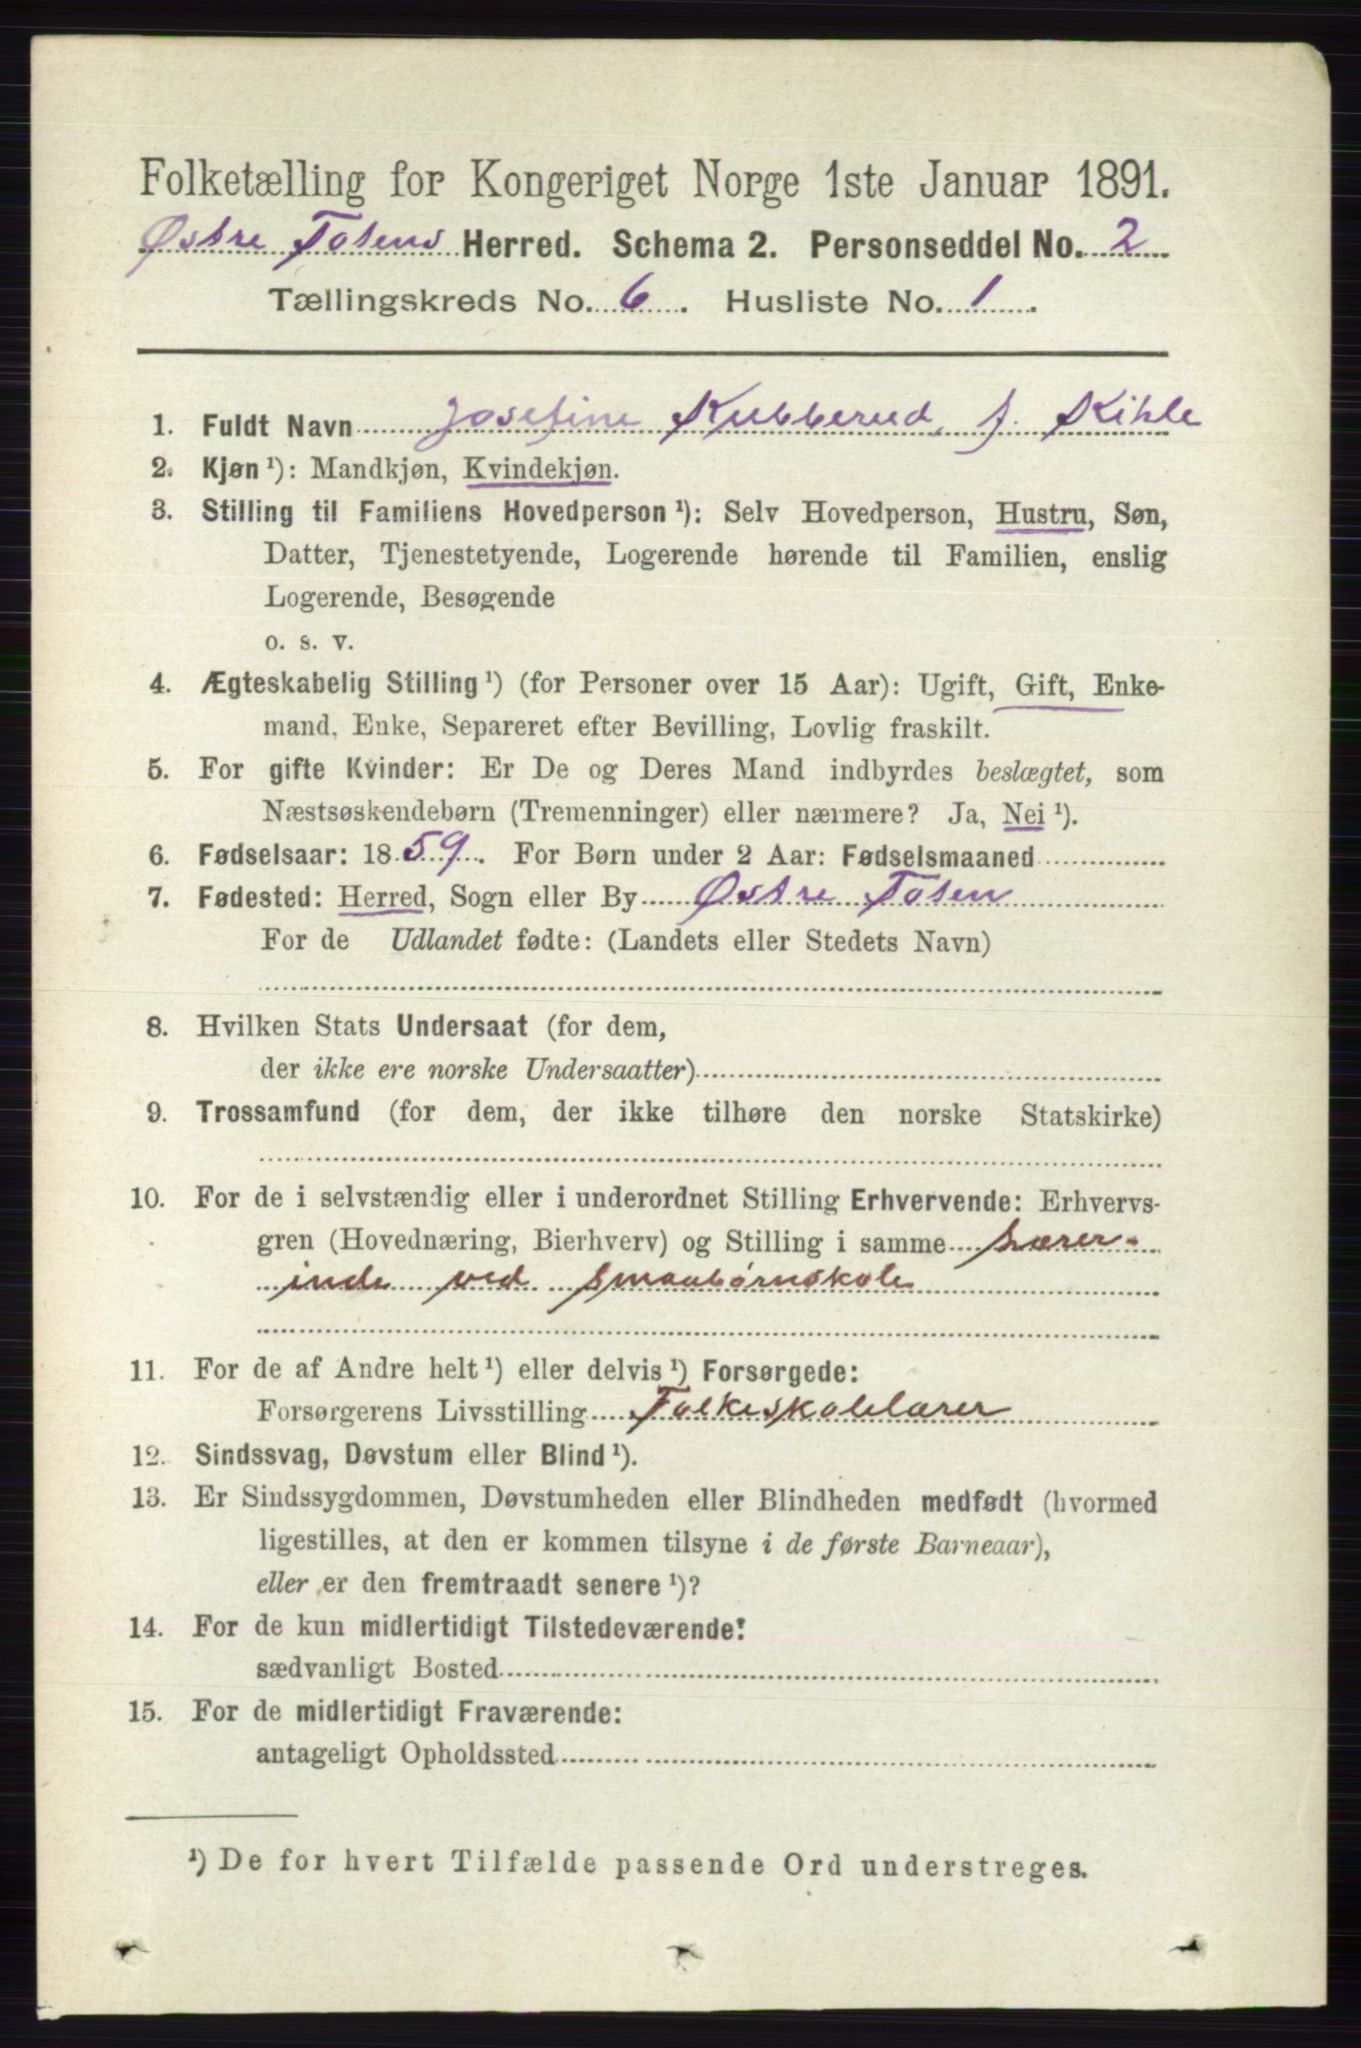 Folketælling for Kongeriget Norge 1ste Januar 1891.
Østre Totens Herred. Schema 2. Personseddel No. 2
Tællingskreds No. 6. Husliste No. 1.
1. Fuldt Navn Josefine Kubberud, f. Kihle
2. Kjøn ¹): Mandkjøn, Kvindekjøn.
3. Stilling til Familiens Hovedperson ¹): Selv Hovedperson, Hustru, Søn,
Datter, Tjenestetyende, Logerende hørende til Familien, enslig
Logerende, Besøgende
o. s. v.
4. Ægteskabelig Stilling ¹) (for Personer over 15 Aar): Ugift, Gift, Enke-
mand, Enke, Separeret efter Bevilling, Lovlig fraskilt.
5. For gifte Kvinder: Er De og Deres Mand indbyrdes beslægtet, som
Næstsøskendebørn (Tremenninger) eller nærmere? Ja, Nei ¹).
6. Fødselsaar: 1859. For Børn under 2 Aar: Fødselsmaaned
7. Fødested: Herred, Sogn eller By Østre Toten
For de Udlandet fødte: (Landets eller Stedets Navn)
8. Hvilken Stats Undersaat (for dem,
der ikke ere norske Undersaatter)
9. Trossamfund (for dem, der ikke tilhøre den norske Statskirke)
10. For de i selvstændig eller i underordnet Stilling Erhvervende: Erhvervs-
gren (Hovednæring, Bierhverv) og Stilling i samme Lærer-
inde ved Smaabørnskole
11. For de af Andre helt ¹) eller delvis ¹) Forsørgede:
Forsørgerens Livsstilling Folkeskolelærer
12. Sindssvag, Døvstum eller Blind ¹).
13. Er Sindssygdommen, Døvstumheden eller Blindheden medfødt (hvormed
ligestilles, at den er kommen tilsyne i de første Barneaar),
eller er den fremtraadt senere ¹)?
14. For de kun midlertidigt Tilstedeværende:
sædvanligt Bosted
15. For de midlertidigt Fraværende:
antageligt Opholdssted
¹) De for hvert Tilfælde passende Ord understreges.